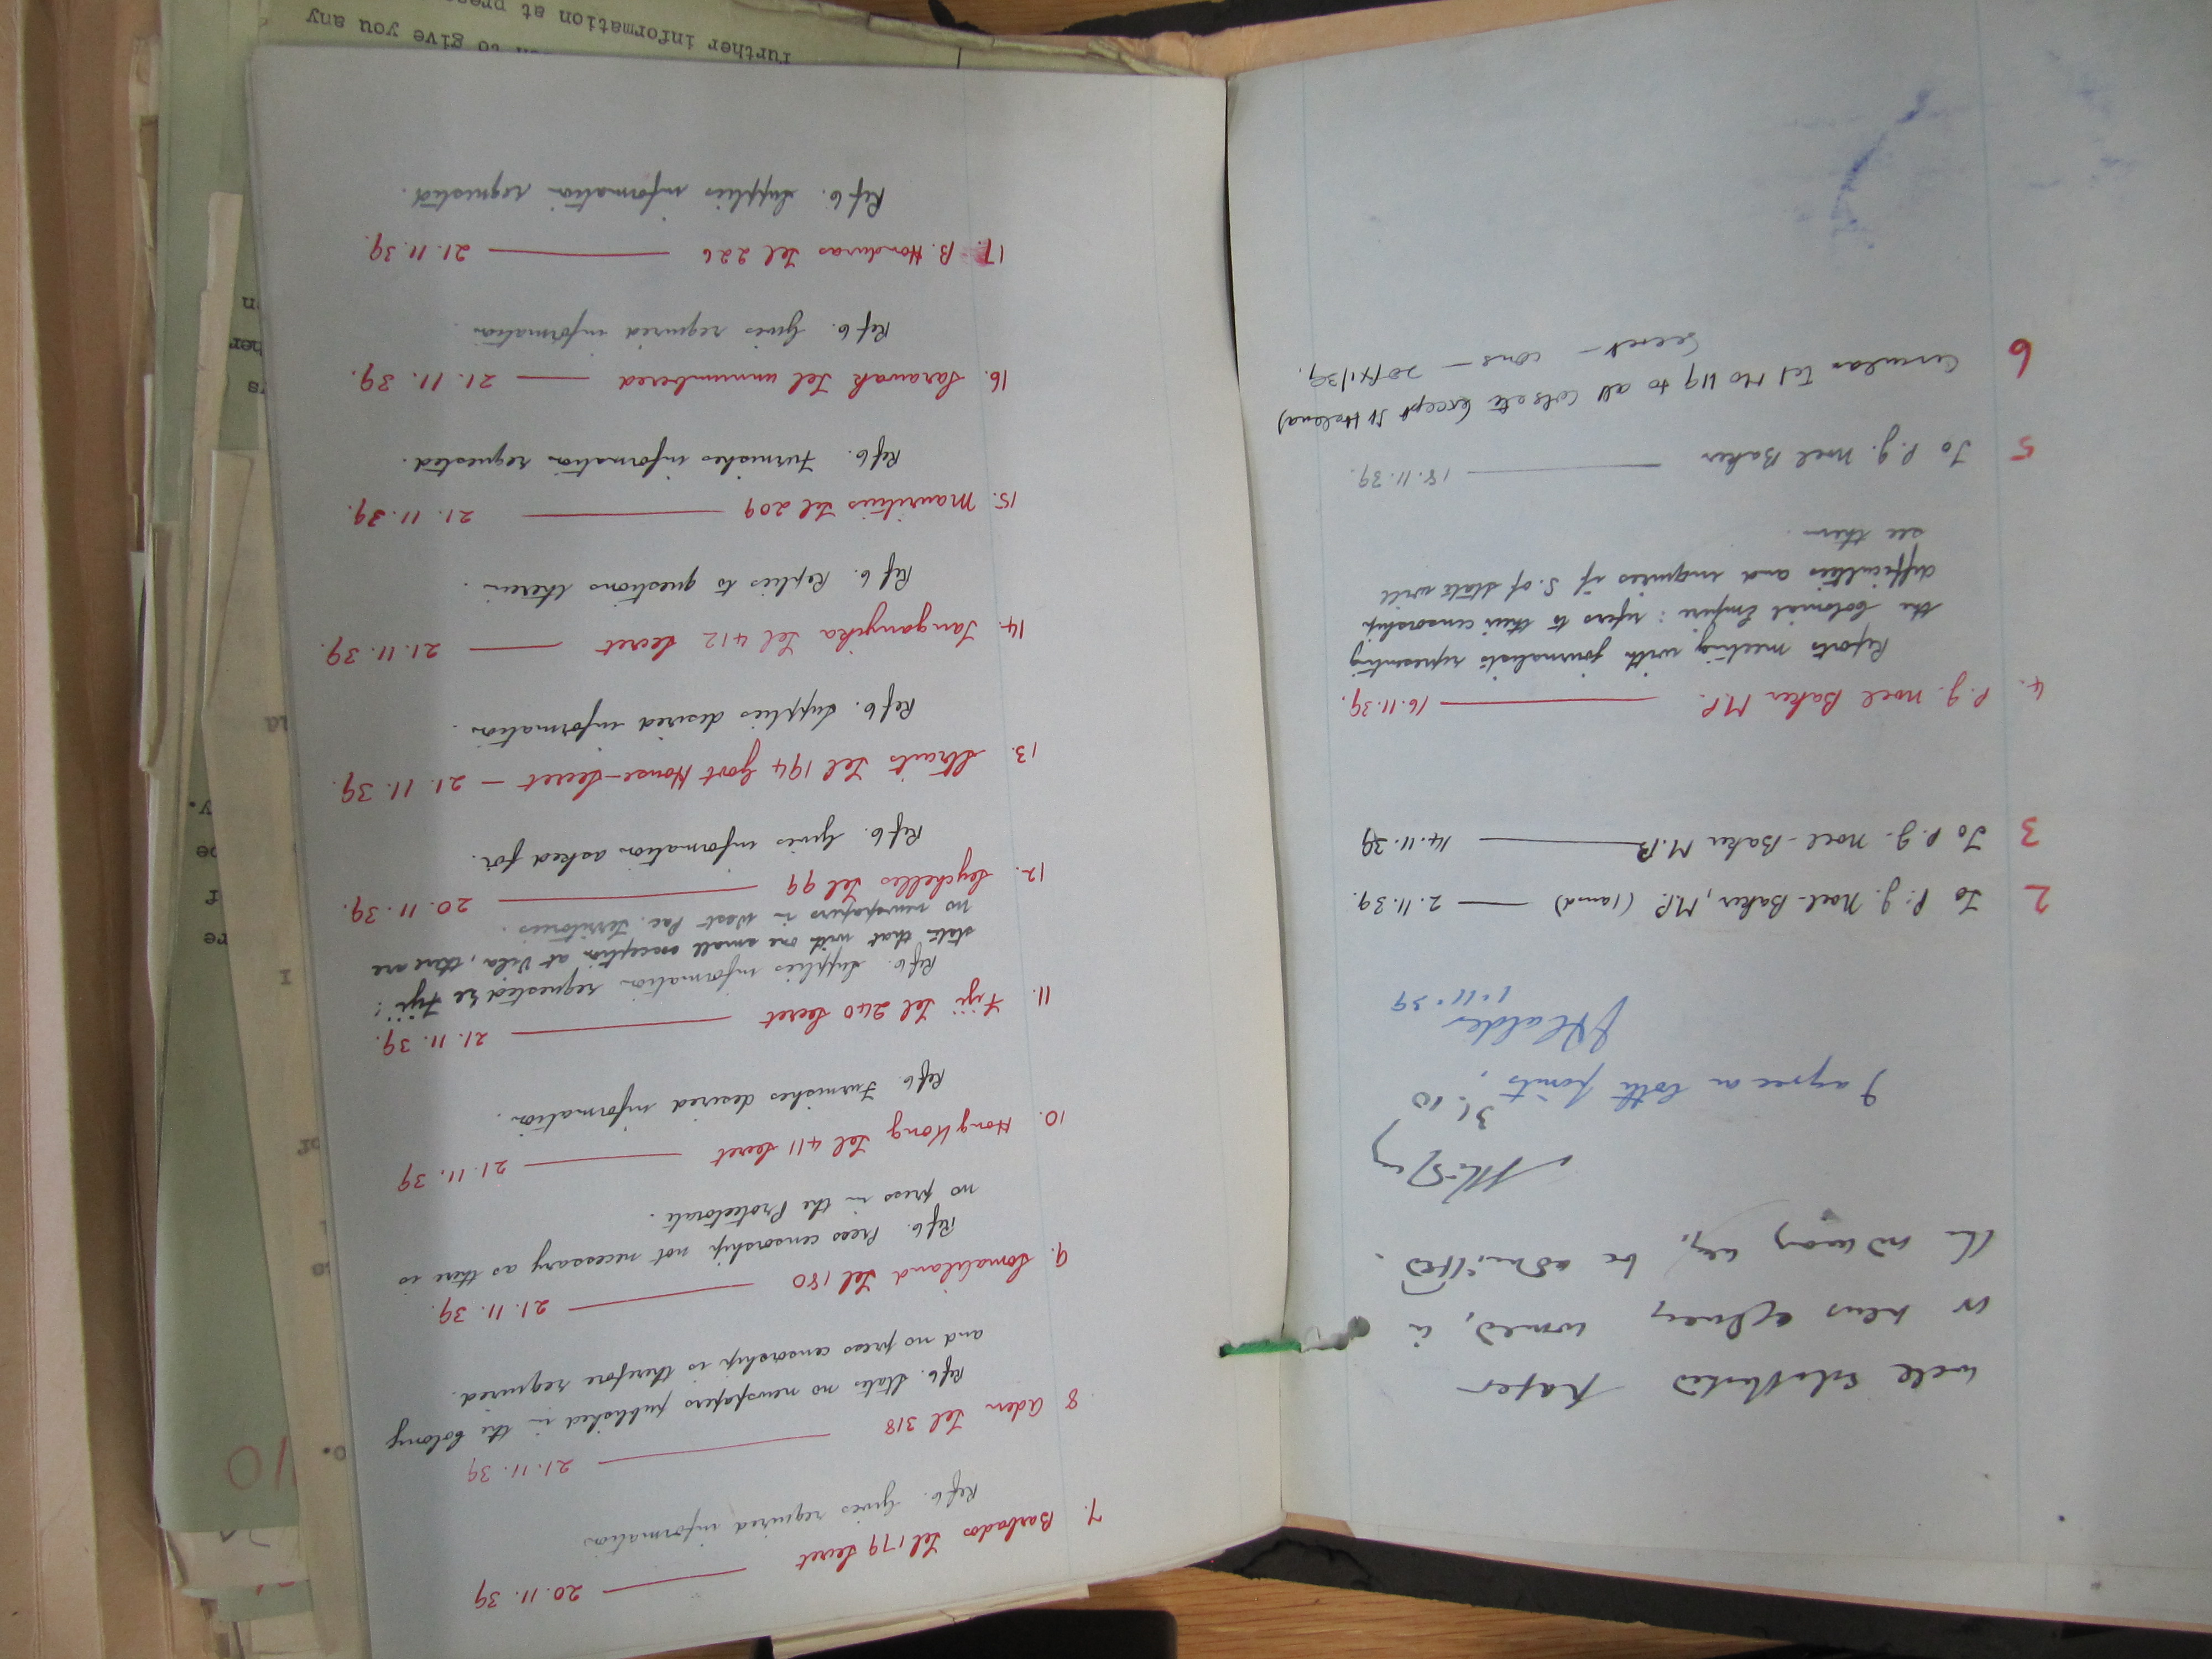 well established paper
or news agency would, in
the ordinary way, be admitted.
31.10
I agree on both points.
J A Calder
1.11.39
2 To P. J. Noel-Baker, M.P. (1 amd) — 2.11.39.
3 To P. J. Noel-Baker M.P. — 14.11.39
4. P. J. Noel Baker M.P. — 16.11.39.
Reports meeting with journalists representing
the Colonial Empire : refers to their censorship
difficulties and enquires if S. of State will
see them.
5 To P. J. Noel Baker — 18.11.39.
6 Circular Tel No 119 to all Cols etc (except St Helena)
Secret — cons — 20/XI/39.
7. Barbados Tel 179 Secret — 20.11.39
Ref 6. Gives required information
8 Aden Tel 318 — 21.11.39
Ref 6. States no newspapers published in the Colony
and no press censorship is therefore required.
9. Somaliland Tel 180 — 21.11.39.
Ref 6. Press censorship not necessary as there is
no press in the Protectorate.
10. Hong Kong Tel 411 Secret — 21.11.39
Ref 6. Furnishes desired information.
11. Fiji Tel 240 Secret — 21.11.39.
Ref 6. Supplies information requested re Fiji :
states that with one small exception at Vila, there are
no newspapers in West Pac. Territories.
12. Seychelles Tel 99 — 20.11.39.
Ref 6. Gives information asked for.
13. Straits Tel 194 Govt House-Secret — 21.11.39.
Ref 6. Supplies desired information.
14. Tanganyika Tel 412 Secret — 21.11.39.
Ref 6. Replies to questions therein.
15. Mauritius Tel 209 — 21.11.39.
Ref 6. Furnishes information requested.
16. Sarawak Tel unnumbered — 21.11.39.
Ref 6. Gives required information.
17. B. Honduras Tel 226 — 21.11.39.
Ref 6. Supplies information requested.
to give you any
further information at